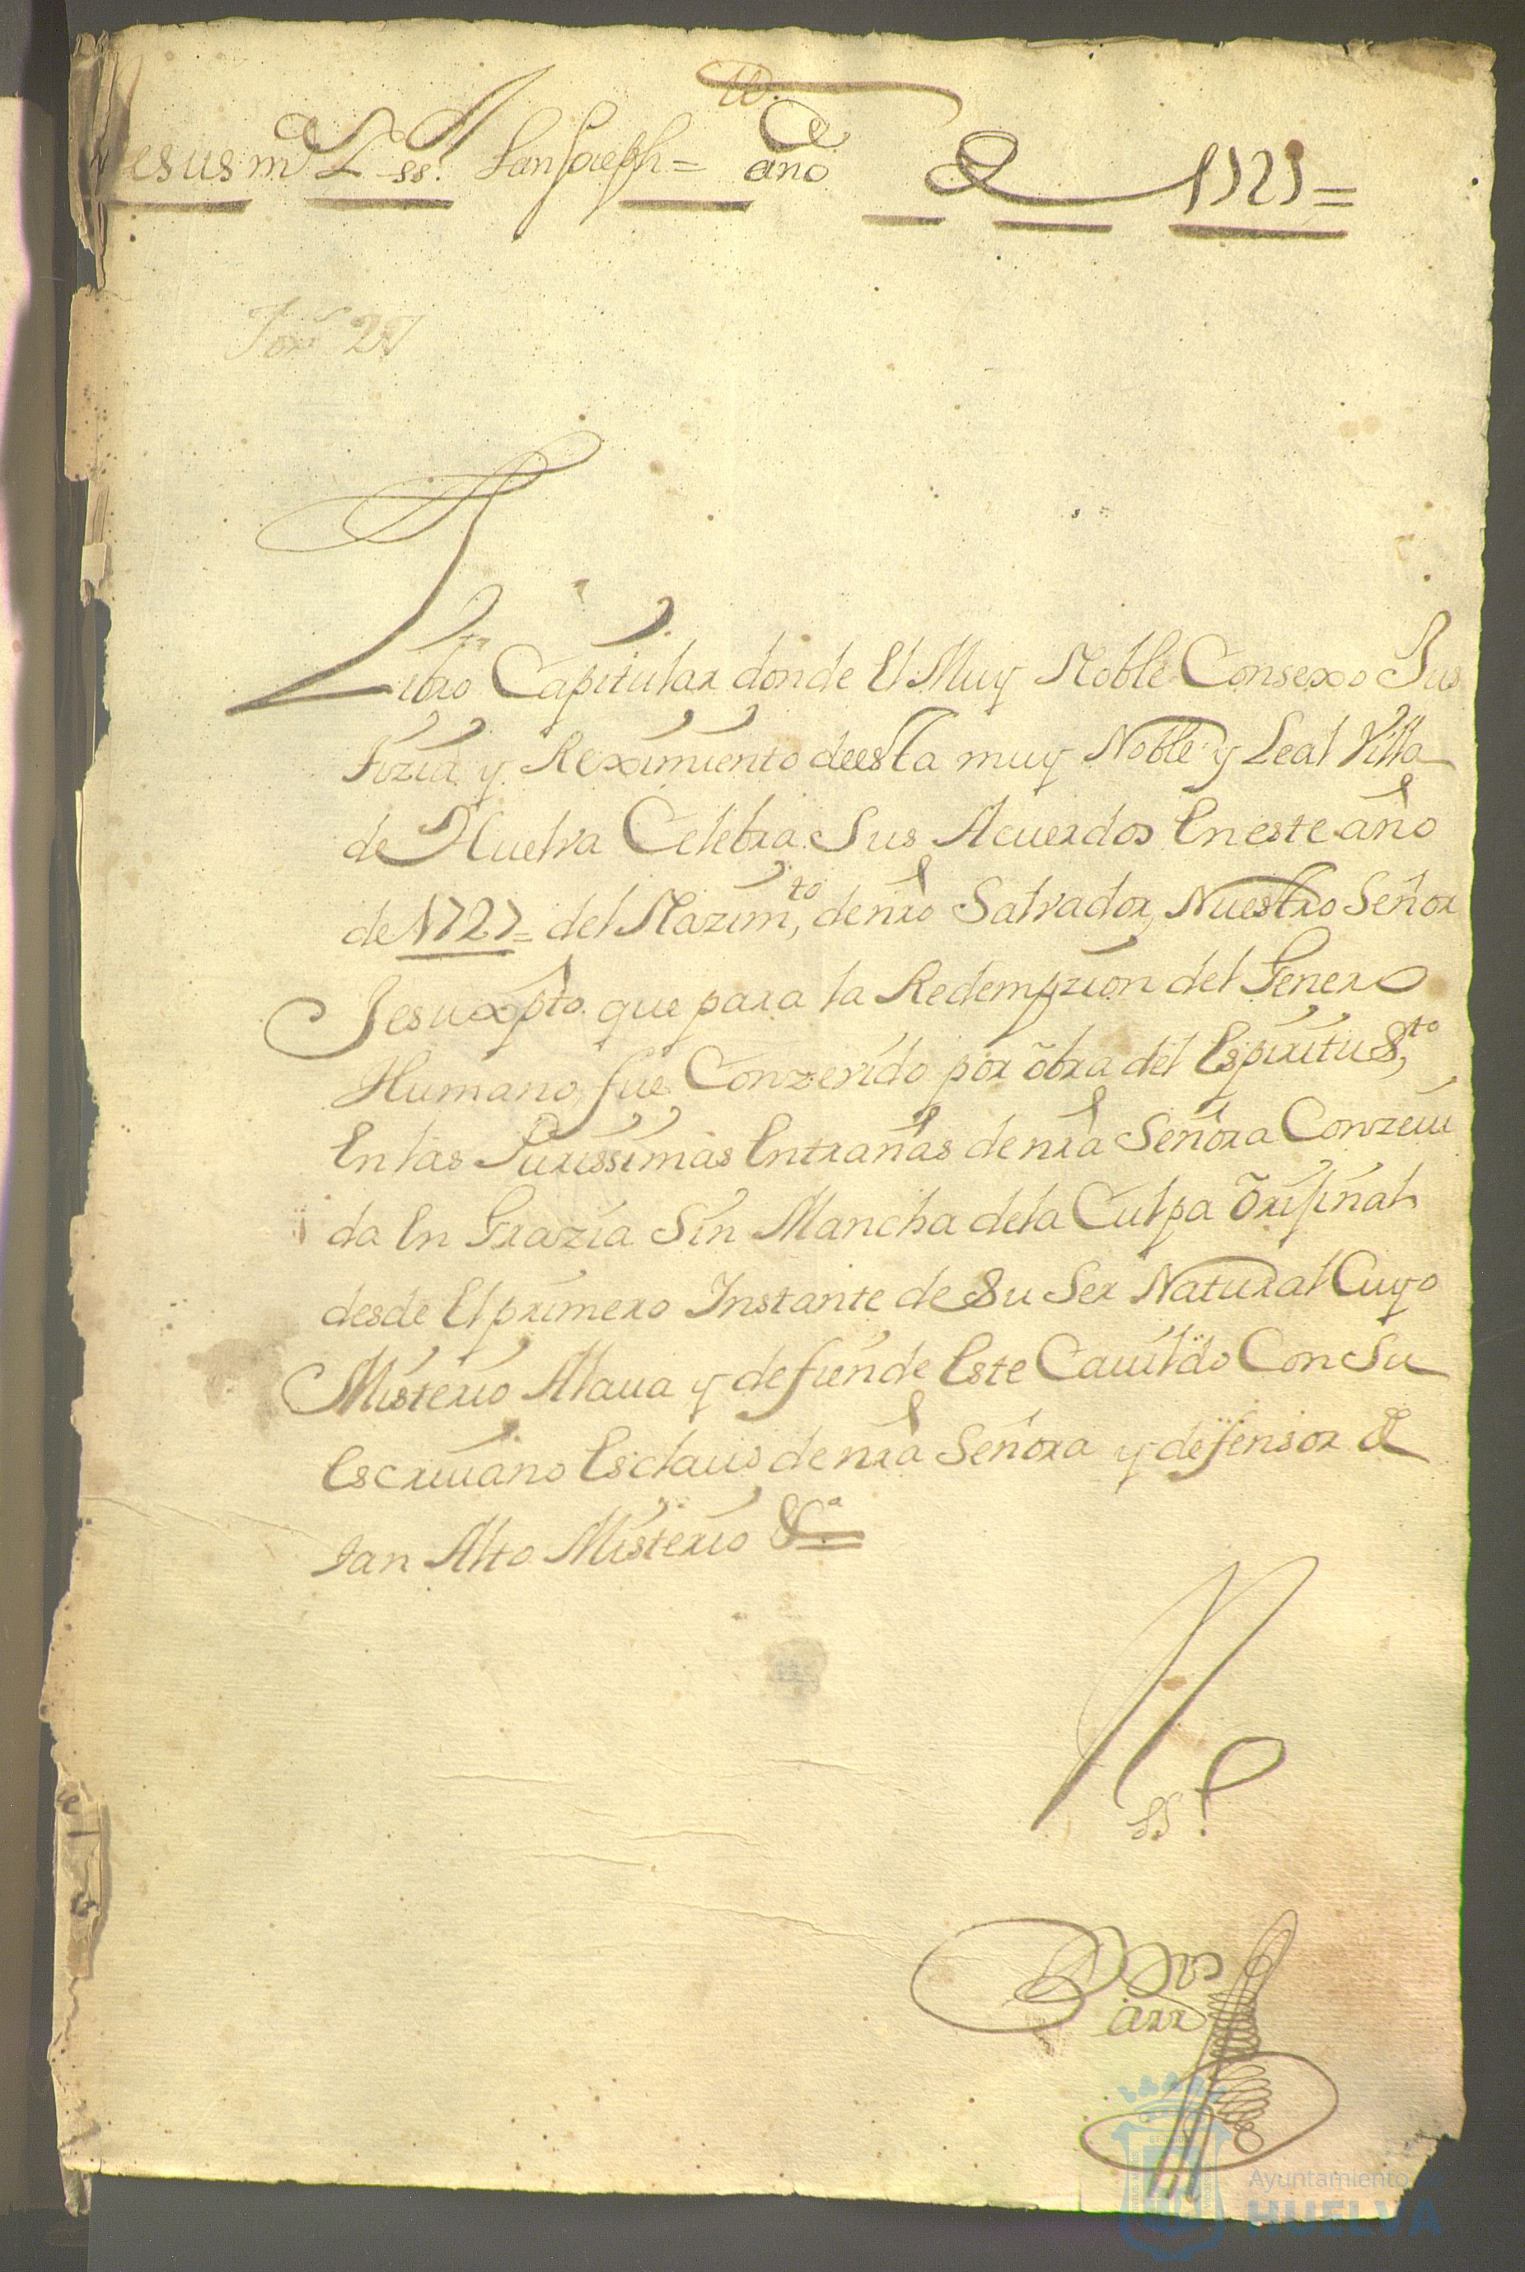 Jesus m.ª ss.ª San Joseph = año de 1727 =
Libro Capitular donde El Muy Noble Consexo Jus
tizia y Reximiento deesta muy Noble y Leal Villa
de Huelva Celebra Sus Acuerdos En este año
de 1727= del Nazim.to de nro Salvador, Nuestro Señor
Jesuxpto. que para la Redempzion del Genero
Humano, fue Conzevido por obra del Espiritu S.to
En las Purissimas Entrañas de nra Señora Conzeui
da En Grazia Sin Mancha dela Culpa Orijinal
desde El primero Instante de Su Ser Natural Cuyo
Misterio Alaua y defiende Este Cauildo Con Su
Escriuano Esclauo de nra Señora y defensor de
tan Alto Misterio &.ª =
Ayuntamiento de
HUELVA